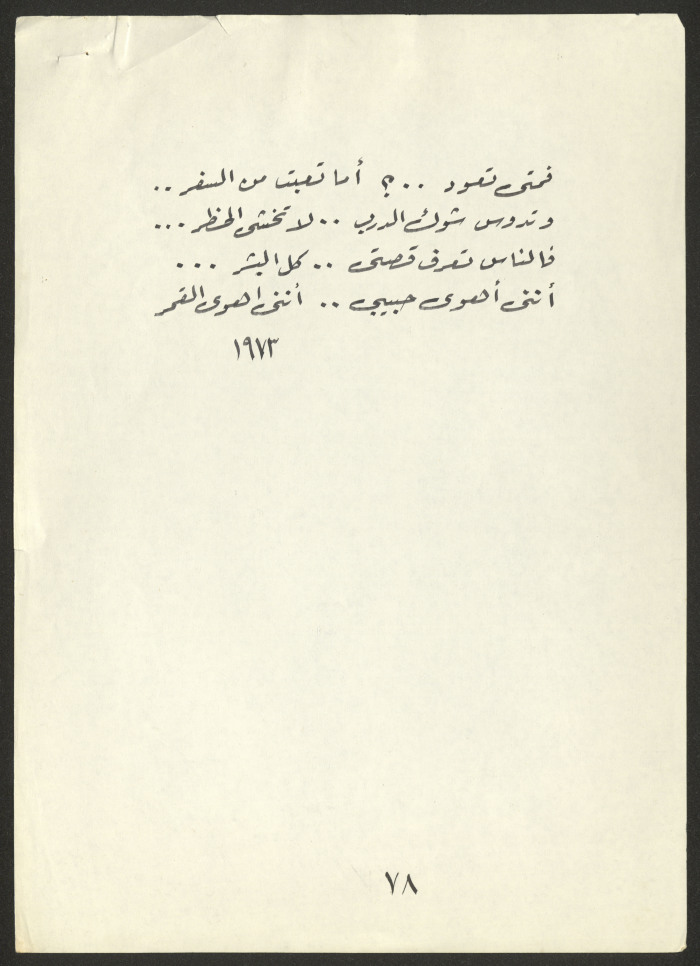 فمتى تعود ..؟ أما تعبت من السفر ..
وتدوس شوك الدرب .. لا تخشى الخطر ...
فالناس تعرف قصتى .. كل البشر ...
أننى أهوى حبيبي .. أننى اهوى القمر
١٩٧٣
٧٨